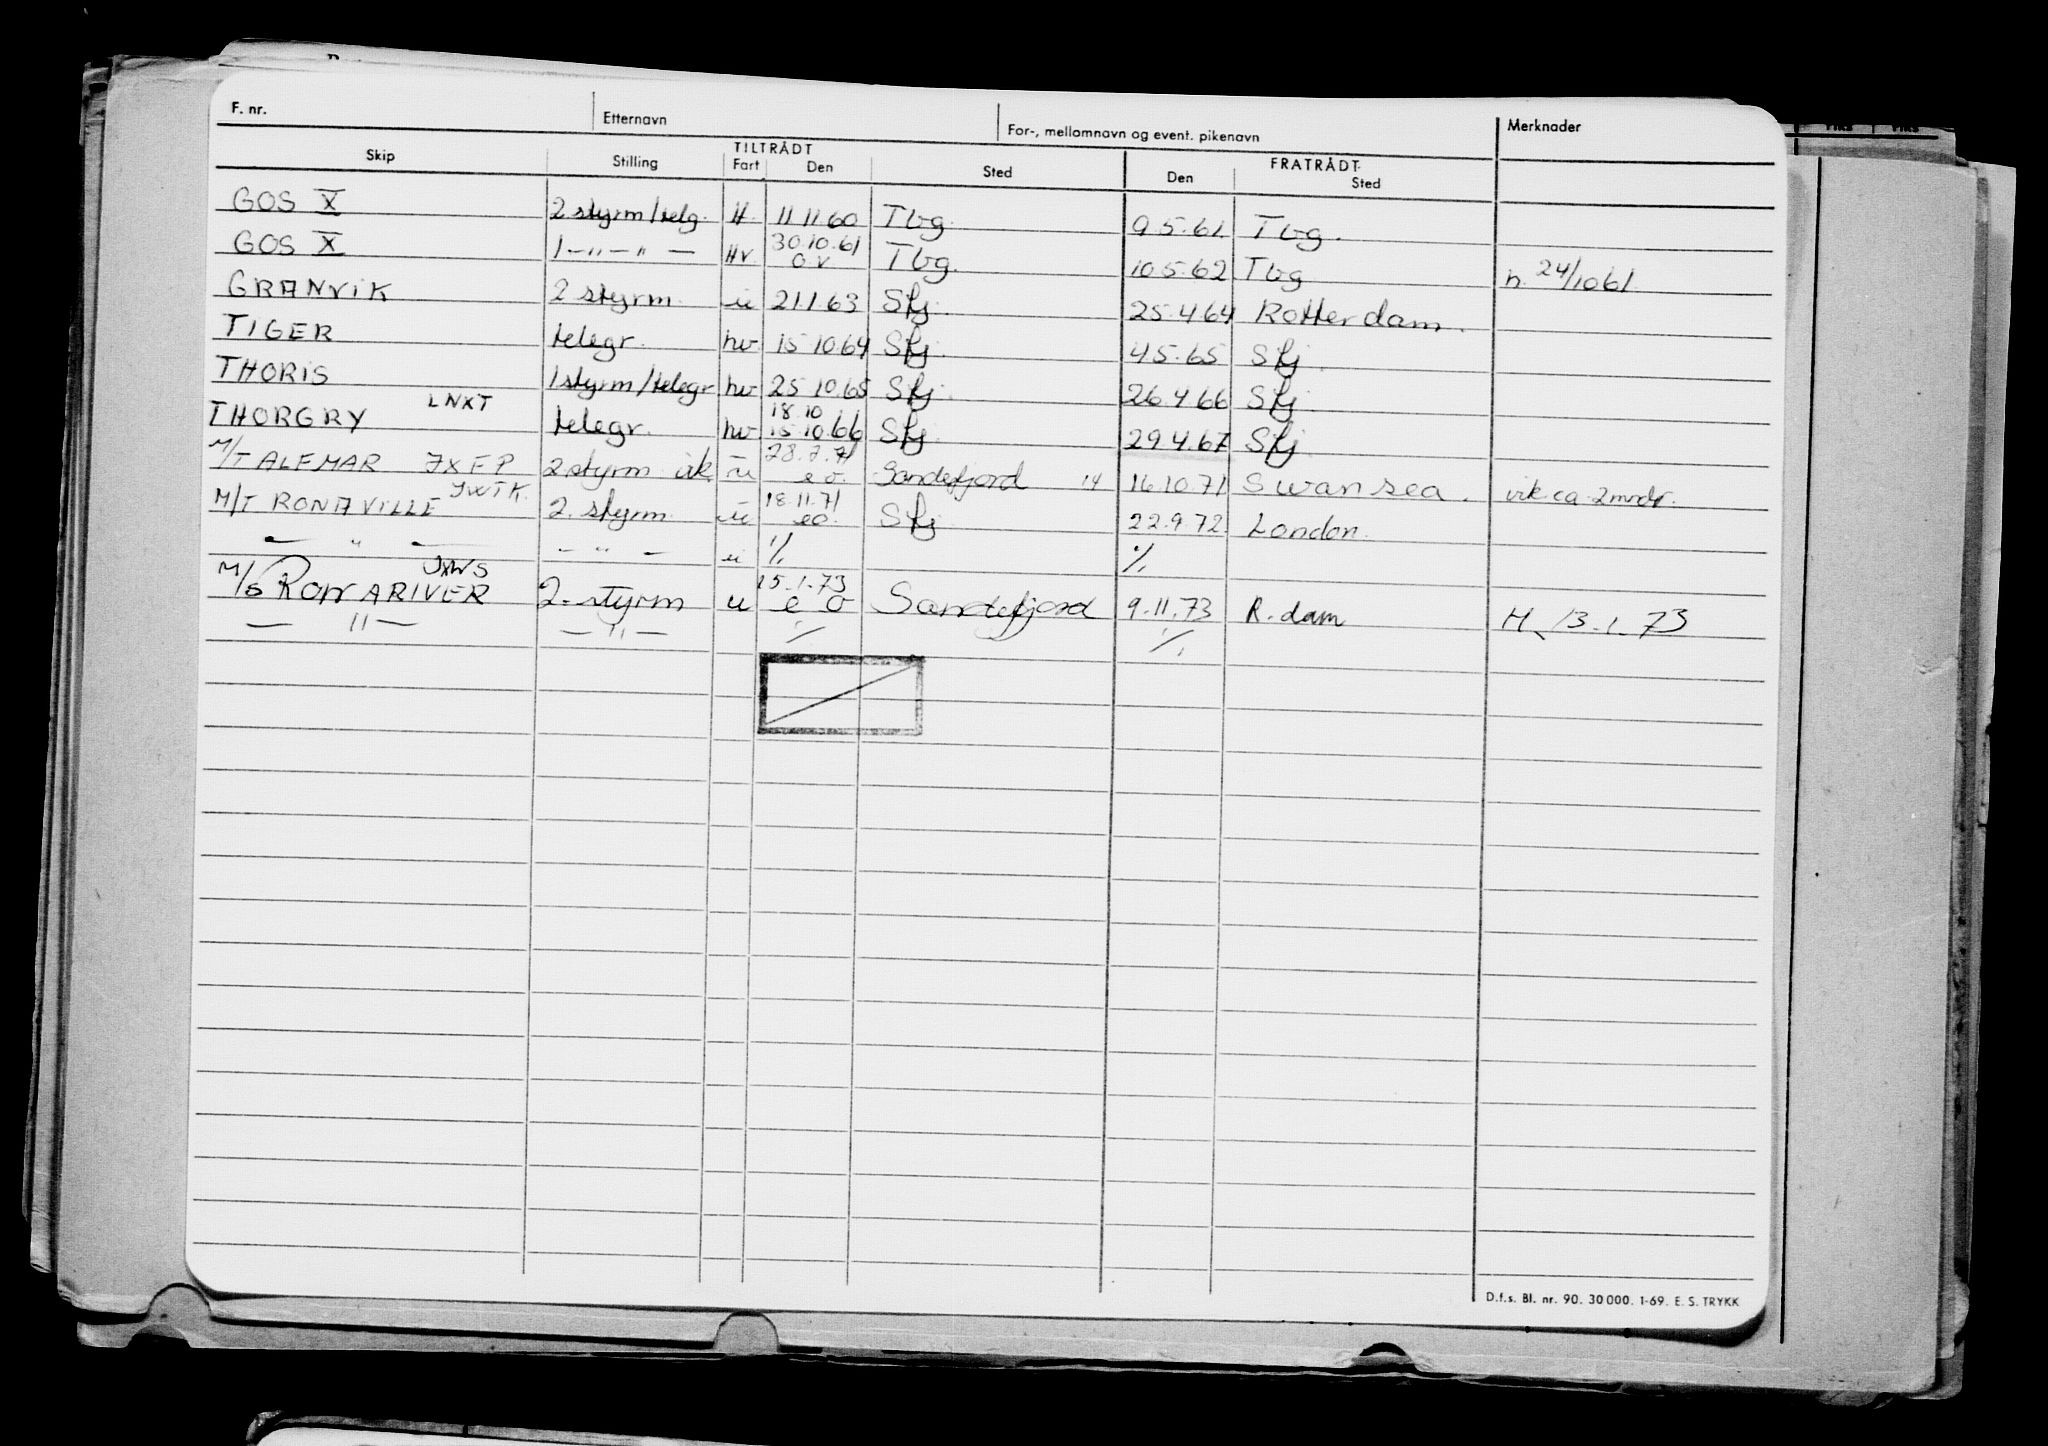 F. nr. Etternavn For-, mellomnavn og event. pikenavn Merknader
TILTRÅDT FRATRÅDT
Skip Stilling Fart Den Sted Den Sted
GOS X 2 styrm/telg. H. 11 11 60 Tbg. 9.5.61 Tbg.
GOS X 1 - " - " - Hv 30.10.61 o.v Tbg. 10.5.62 Tbg h. 24/10 61
GRANVIK 2 styrm. u 21.1.63 Sfj. 25.4 64 Rotterdam.
TIGER telegr. hv 15 10.64 Sfj. 4.5.65 Sfj.
THORIS 1 styrm/telegr hv 25 10.65 Sfj. 26.4 66 Sfj.
THORGRY LNXT telegr. hv 18.10 15.10.66 Sfj. 29.4.67 Sfj.
M/T ALEMAR JXEP 2 styrm vik u 28.7.71 e o. Sandefjord 14 16.10.71 Swansea. vik ca 2 mndr.
M/T RONAVILLE JWTK. 2. styrm u 18.11.71 eo. Sfj 22.9.72 London.
— " — - " - u ./. ./.
M/S RONARIVER JXWS 2. styrm u 15.1.73 e o Sandefjord 9.11.73 R.dam M. 13.1.73
— " — — " — ./. ./.
D.f.s. Bl. nr. 90. 30 000. 1-69. E. S. TRYKK